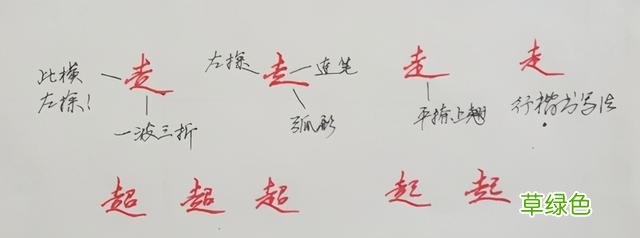 走 左探 走 连笔 走 走
此横
左探!
一波三折 弧形 平捺上翘 行楷书写法
超 超 超 起 起
草绿色